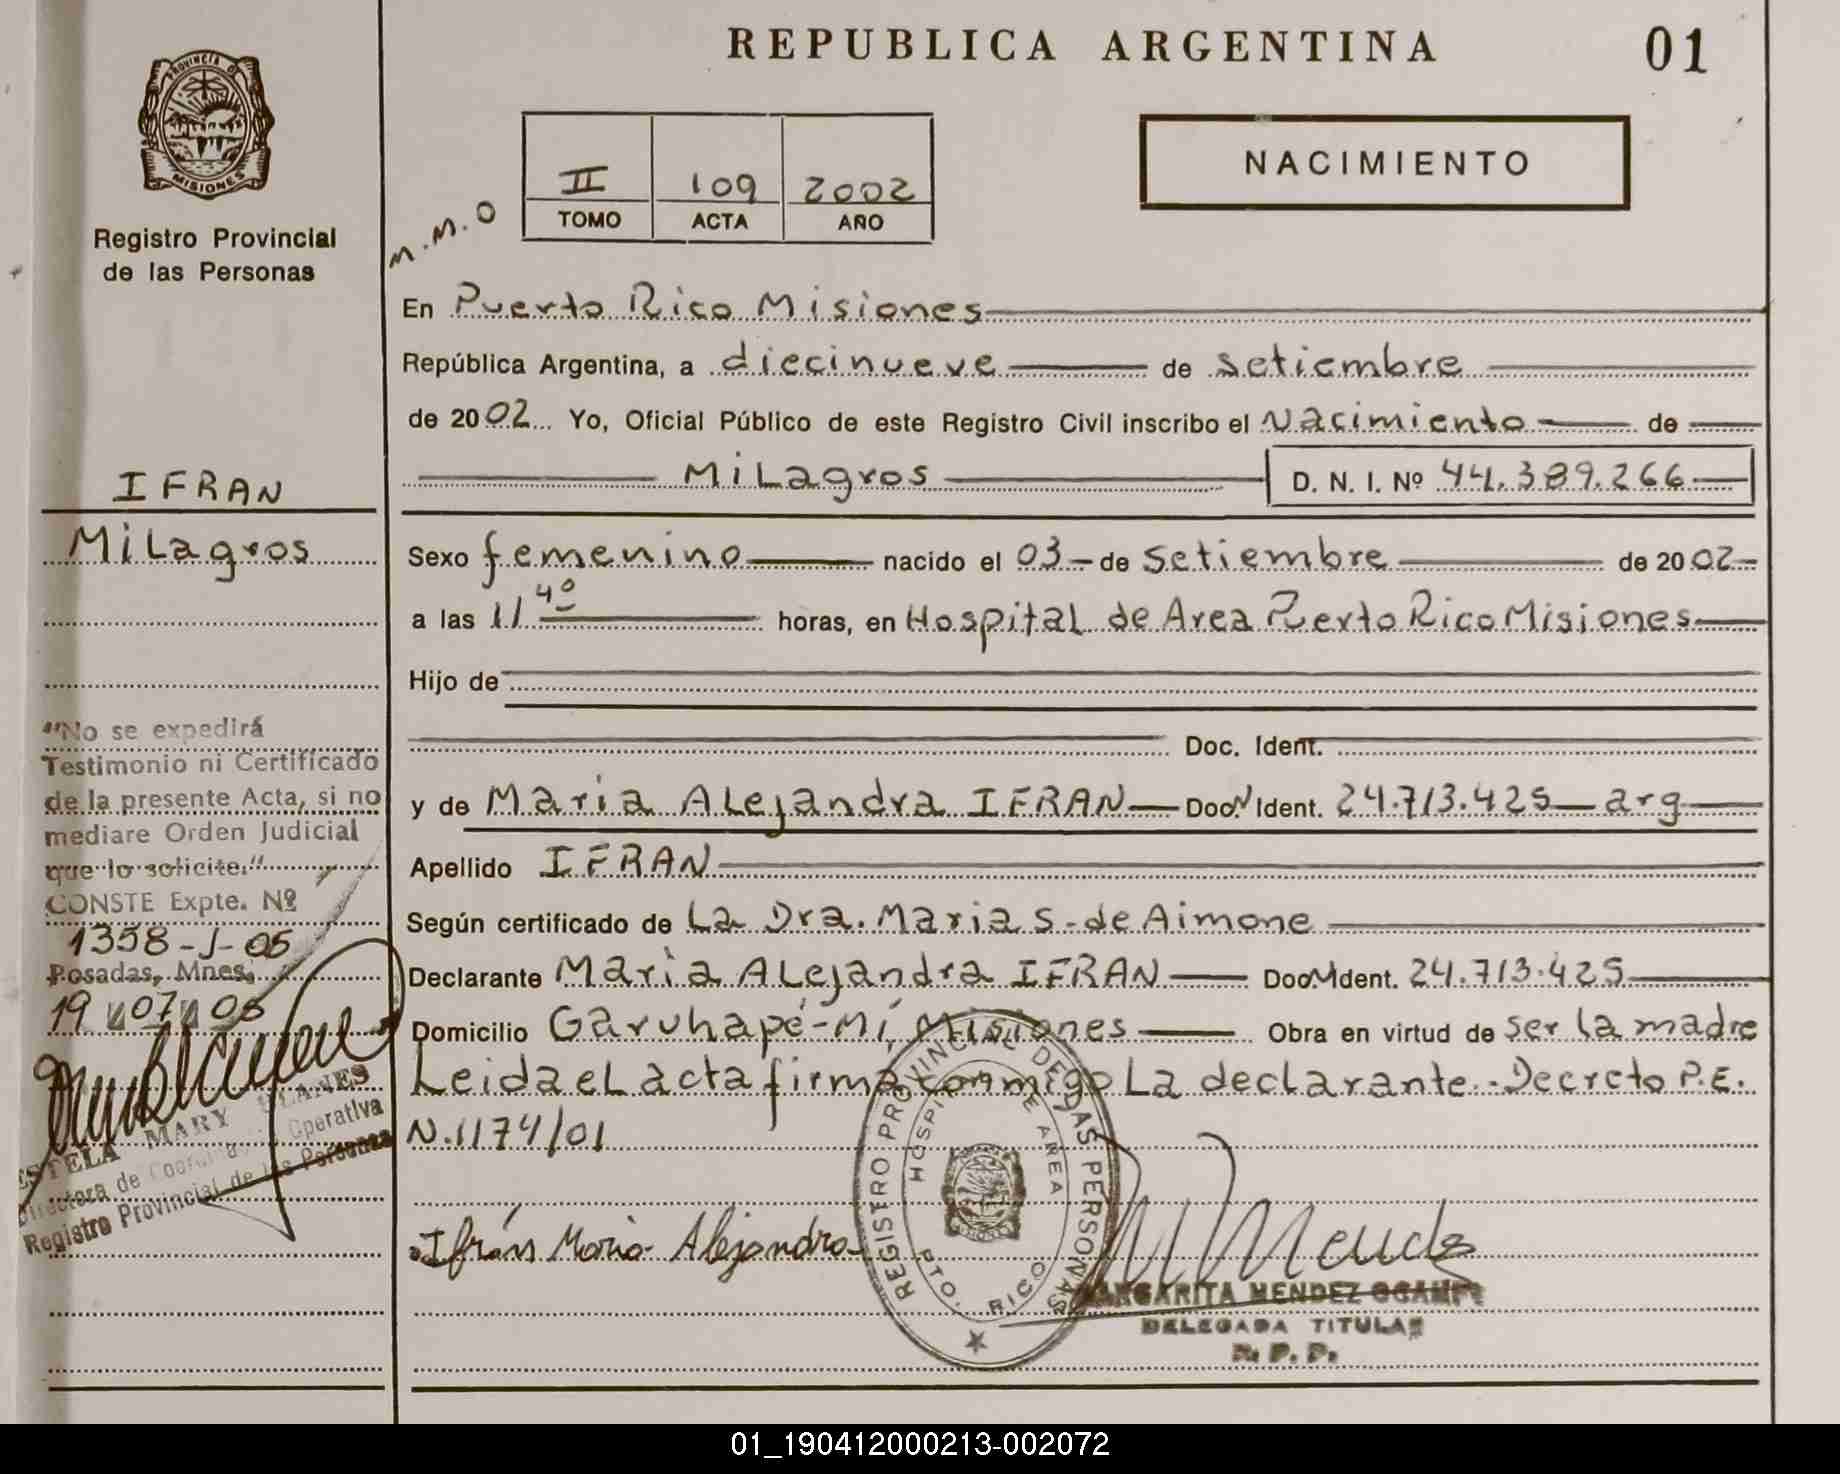 REPUBLICA ARGENTINA
01
PROVINCIA D
MISIONES
Registro Provincial
de las Personas
II 109 2002
TOMO ACTA AÑO
NACIMIENTO
M.M.O
En Puerto Rico Misiones
República Argentina, a diecinueve de setiembre
de 2002 Yo, Oficial Público de este Registro Civil inscribo el Nacimiento de
Milagros D. N. I. Nº 44.389.266
IFRAN
Milagros
Sexo femenino nacido el 03 de setiembre de 2002
a las 11 40 horas, en Hospital de Area Puerto Rico Misiones
Hijo de
Doc. Ident.
y de Maria Alejandra IFRAN Doc. N Ident. 24.713.425 arg
Apellido IFRAN
Según certificado de La Dra. Maria S. de Aimone
Declarante Maria Alejandra IFRAN Doc. N Ident. 24.713.425
Domicilio Garuhapé-Mí, Misiones Obra en virtud de ser la madre
Leida el acta firma conmigo La declarante.-Decreto P.E.
N.1174/01
"No se expedirá
Testimonio ni Certificado
de la presente Acta, si no
mediare Orden Judicial
que lo solicite."
CONSTE Expte. Nº
1358-J-05
Posadas, Mnes.
19 07 05
ESTELA MARY
Directora de Operativa
Registro Provincial de las Personas
Ifrán Maria Alejandra
REGISTRO PROVINCIAL DE LAS PERSONAS
HOSPITAL DE AREA
PTO. RICO
MARGARITA MENDEZ OCAMPO
DELEGADA TITULAR
R. P. P.
01_190412000213-002072